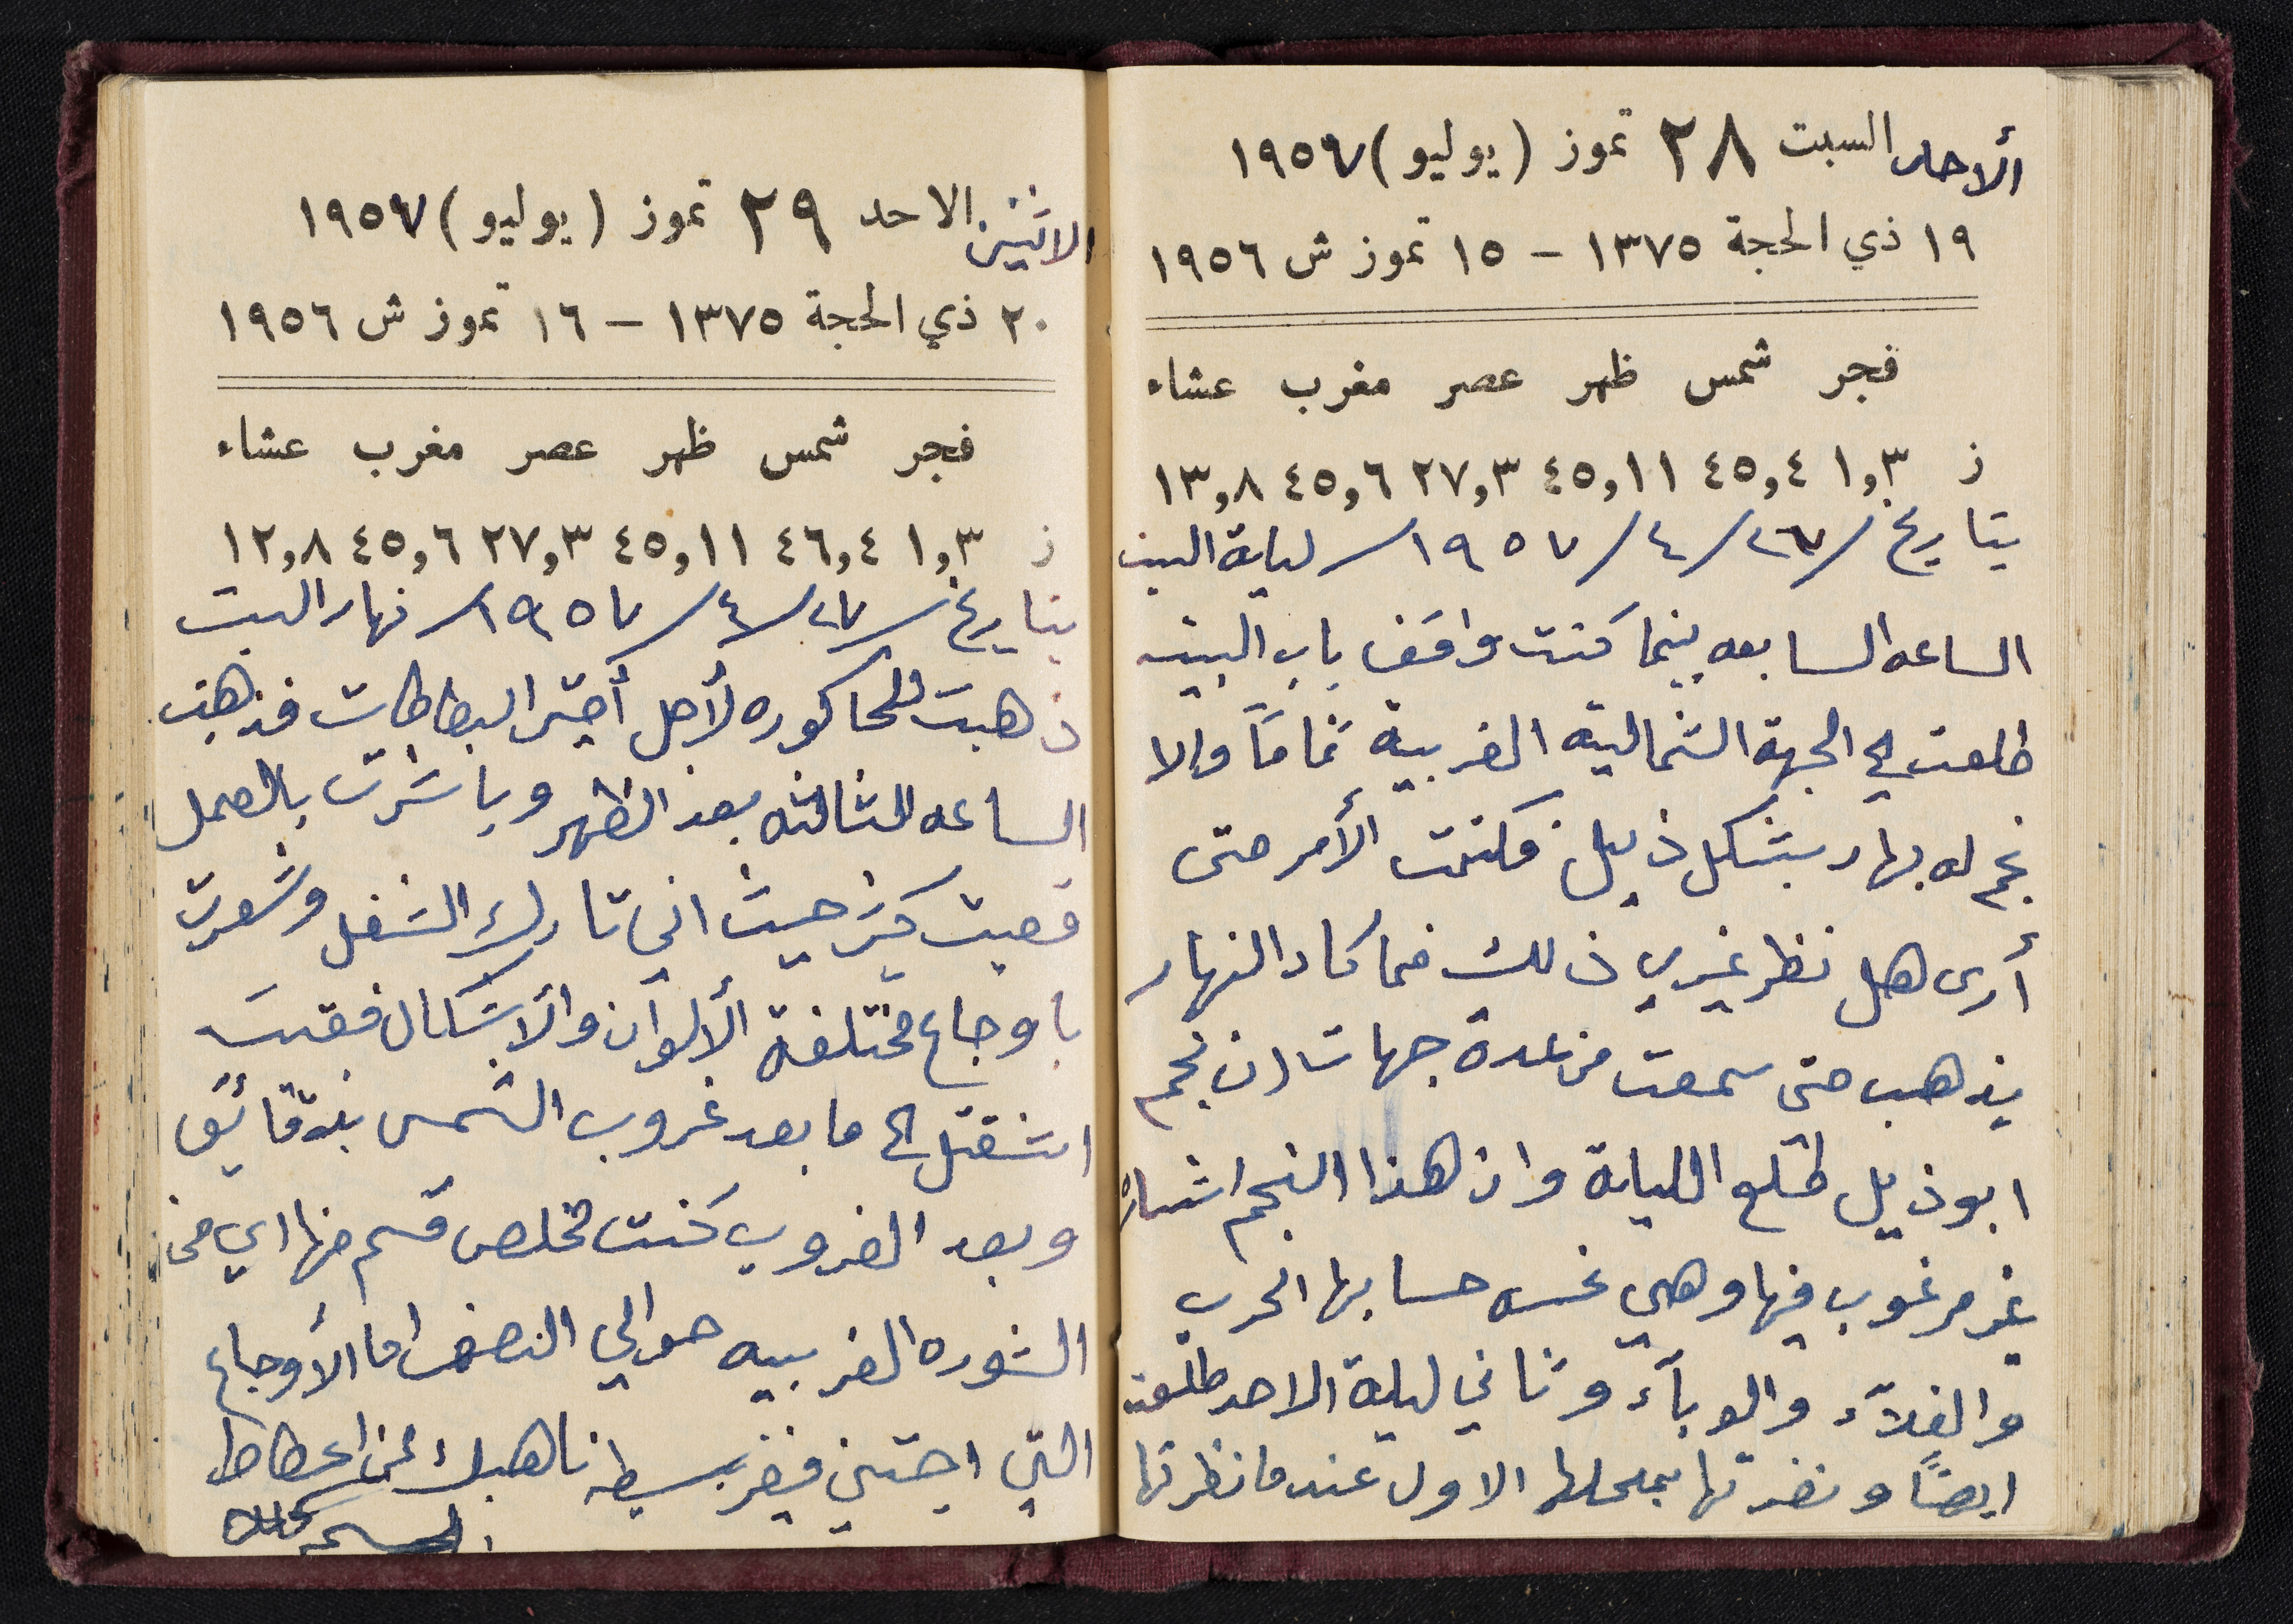 الأحد السبت ٢٨ تموز (يوليو) ١٩٥٧
١٩ ذي الحجة ١٣٧٥ - ١٥ تموز ش ١٩٥٦
فجر شمس ظهر عصر مغرب عشاء
ز ١,٣ ٤٥,٤ ٤٥,١١ ٢٧,٣ ٤٥,٦ ١٣,٨
بتاريخ /٢٦/٤/١٩٥٧ ليلة السبت
الساعه السابعه بينما كنت واقف باب البيت
طلعت الى الجهة الشمالية الغربية تماماً والا
نجم له بهار بشكل ذيل فكتمت الأمر حتى
أرى هل نظر غيري ذلك فما كاد النهار
يذهب حتى سمعت من عدة جهات ان نجم
ابو ذيل طلع الليلة وان هذا النجم اشارة
غير مرغوب فيها وهي نحسه حسابها الحرب
والغلآء والوبآء وثاني ليلة الاحد طلعت
ايضاً ونضرتها بمحلها الاول عندما نظرتها
الاثنين الاحد ٢٩ تموز (يوليو) ١٩٥٧
٢٠ ذي الحجة ١٣٧٥ - ١٦ تموز ش ١٩٥٦
فجر شمس ظهر عصر مغرب عشاء
ز ١,٣ ٤٦,٤ ٤٥,١١ ٢٧,٣ ٤٥,٦ ١٢,٨
بتاريخ /٢٧/٤/١٩٥٧ نهار السبت
ذهبت للحاكوره لأجل البطاطات فذهبت
الساعه الثالثه بعد الظهر وباشرت بالعمل
حيث اني تارك الشغل وشعرت
باوجاع مختلفة الألوان والأشكال فبقيت
اشتغل الى ما بعد غروب الشمس بدقائق
وبعد الغروب كنت مخلص قسم منها اي من
الشوره الغربيه حوالي النصف اما الأوجاع
التي اجتني فغير بسيطه ناهيك عن انحطاط